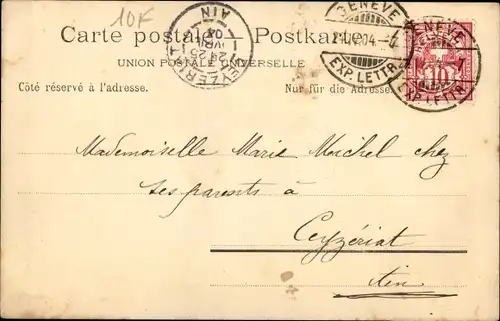 10F
Carte postale. Postkarte.
UNION POSTALE UNIVERSELLE
Côté réservé à l'adresse. Nur für die Adresse.
CEYZERIAT
24
AVRIL
04
AIN
GENÈVE
EXP. LETTR.
GENÈVE
EXP. LETTR.
10
Mademoiselle Marie Michel chez
ses parents à
Ceyzériat
Ain